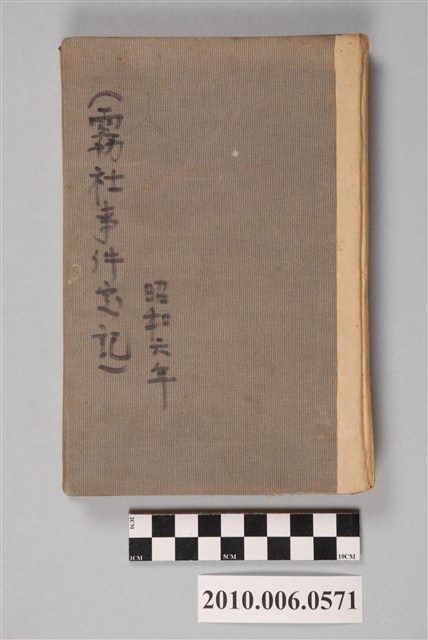 昭和六年
(霧社事件記)
2CM
1CM 5CM 10CM
2010.006.0571